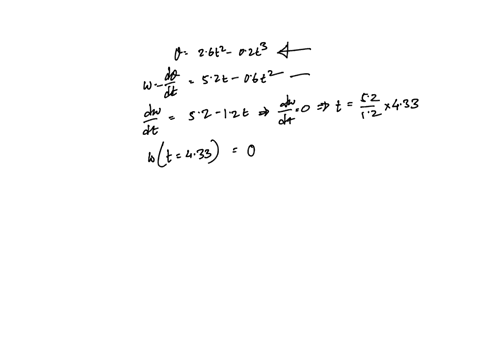 θ = 2.6t² - 0.2t³
w = dθ/dt = 5.2t - 0.6t²
dw/dt = 5.2 - 1.2t ⇒ dw/dt = 0 ⇒ t = 5.2/1.2 × 4.33
w(t = 4.33) = 0